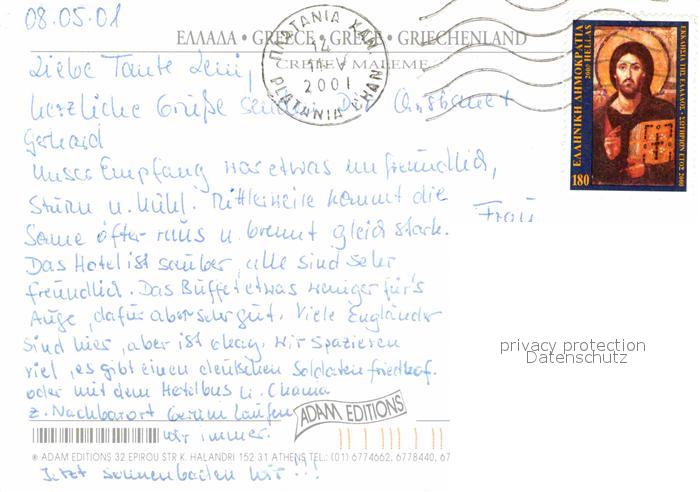 08.05.01
ΕΛΛΑΔΑ • GREECE • GRECE • GRIECHENLAND
CRETE / MALEME
ΠΛΑΤΑΝΙΑ ΧΑΝ.
14 V
2001
PLATANIA CHAN
ΕΛΛΗΝΙΚΗ ΔΗΜΟΚΡΑΤΙΑ
2000 HELLAS
ΕΚΚΛΗΣΙΑ ΤΗΣ ΕΛΛΑΔΟΣ - ΣΩΤΗΡΙΟΝ ΕΤΟΣ 2000
180
Liebe Tante Leni,
herzliche Grüße
Gerhard
Unser Empfang war etwas unfreundlich,
Sturm u. kühl. Mittlerweile kommt die
Sonne öfter raus u. brennt gleich stark.
Das Hotel ist sauber, alle sind sehr
freundlich. Das Büffet etwas weniger für's
Auge, dafür aber sehr gut. Viele Engländer
sind hier, aber ist okay. Wir spazieren
viel, es gibt einen deutschen Soldatenfriedhof.
oder mit dem Hotelbus n. Chania
z. Nachbarort laufen
wir immer.
Jetzt sonnenbaden wir!!!
Frau
ADAM EDITIONS
® ADAM EDITIONS 32 EPIROU STR K. HALANDRI 152 31 ATHENS TEL.: (01) 6774662, 6778440, 67
privacy protection
Datenschutz